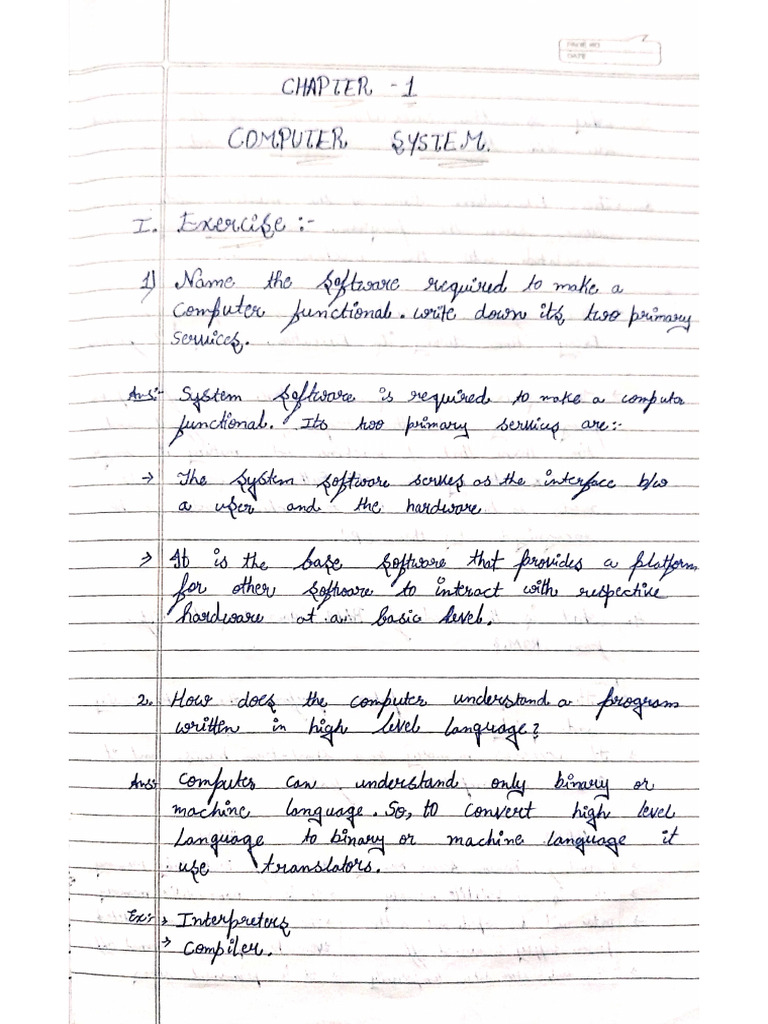 PAGE NO
DATE
CHAPTER - 1
COMPUTER SYSTEM.
I. Exercise :-
1) Name the software required to make a
computer functional. write down its two primary
services.
Ans:- System software is required to make a computer
functional. Its two primary services are:-
→ The system software serves as the interface b/w
a user and the hardware
→ It is the base software that provides a platform
for other software to interact with respective
hardware at a basic level.
2. How does the computer understand a program
written in high level language?
Ans:- Computer can understand only binary or
machine language. So, to convert high level
Language to binary or machine language it
use translators.
Ex:- → Interpreters
→ Compiler.